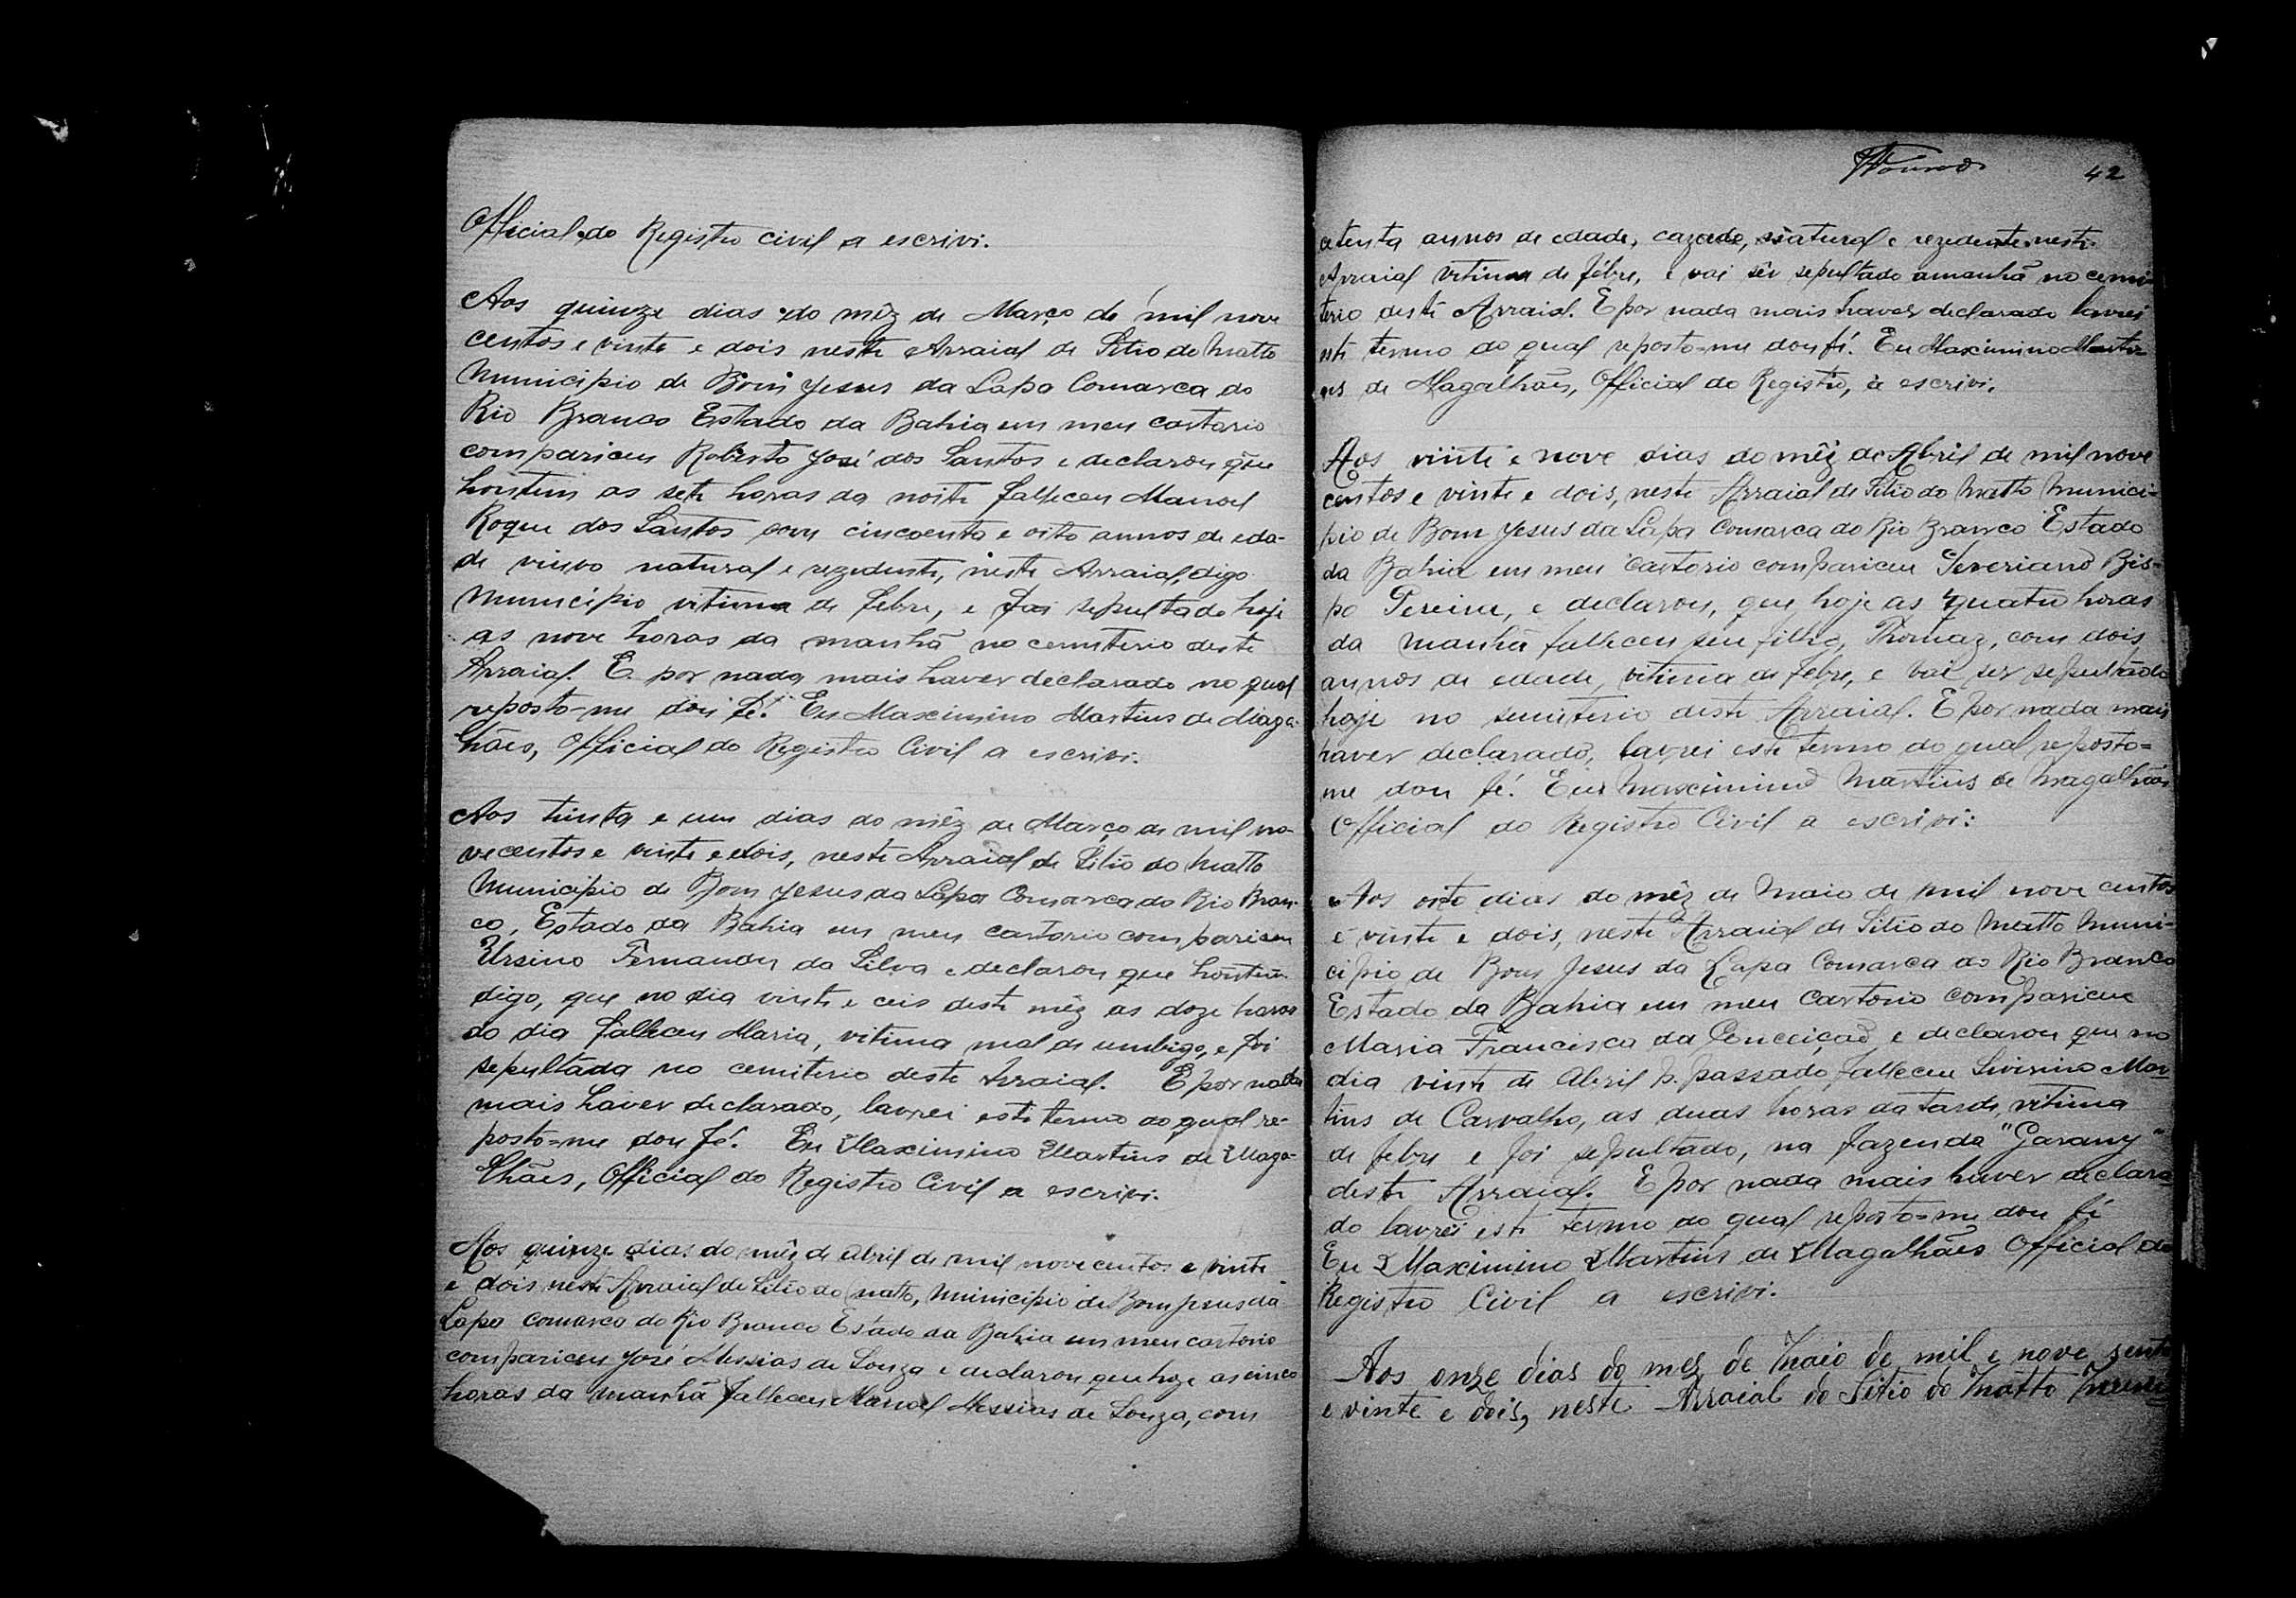 Official do Registro civil a escrivi.
Aos quinze dias do mêz de Março de mil nove
centos e vinte e dois neste Arraial de Sitio do Matto
Municipio de Bom Jesus da Lapa Comarca do
Rio Branco Estado da Bahia em meu cartorio
compariceu Roberto José dos Santos e declarou que
hontem as sete horas da noite falleceu Manoel
Roque dos Santos com cincoenta e oito annos de eda-
de viuvo natural e rezidente, neste Arraial, digo
Municipio vitima de febre, e foi sepultado hoje
as nove horas da manhã no cemiterio deste
Arraial. E por nada mais haver declarado no qual
reposto-me dou fé. Eu Maximino Martins de Maga-
lhães, Official do Registro Civil a escrivi.
Aos trinta e um dias do mêz de Março de mil no-
vecentos e vinte e dois, neste Arraial de Sitio do Matto
Municipio de Bom Jesus da Lapa Comarca do Rio Bran-
co, Estado da Bahia em meu cartorio compariceu
Ursino Fernandes da Silva e declarou que hontem
digo, que no dia vinte e ceis deste mêz as doze horas
do dia falleceu Maria, vitima mal de umbigo, e foi
sepultada no cemiterio deste Arraial. E por nada
mais haver declarado, lavrei este termo do qual re-
posto-me dou fé. Eu Maximino Martins de Maga-
lhães, Official do Registro Civil a escrivi.
Aos quinze dias do mêz de Abril de mil novecentos e vinte
e dois neste Arraial de Sitio do Matto, Municipio de Bom Jesus da
Lapa Comarca do Rio Branco Estado da Bahia em meu cartorio
compariceu José Messias de Souza e declarou que hoje as cinco
horas da manhã falleceu Manoel Messias de Souza, com
42
annos de edade, cazado, natural e rezidente neste
Arraial vitima de fébre, e vai sêr sepultado amanhã no cemi-
terio deste Arraial. E por nada mais haver declarado lavrei
este termo do qual reposto-me dou fé. Eu Maximino Marti-
ns de Magalhães, Official do Registro, a escrivi.
Aos vinte e nove dias do mêz de Abril de mil nove
centos e vinte e dois, neste Arraial de Sitio do Matto Munici-
pio de Bom Jesus da Lapa Comarca do Rio Branco Estado
da Bahia em meu Cartorio compariceu Severiano Bis-
po Pereira, e declarou, que hoje as quatro horas
da manhã falleceu seu filho, Thomaz, com dois
annos de edade, vitima de febre, e vai ser sepultado
hoje no semiterio deste Arraial. E por nada mais
haver declarado, lavrei este termo do qual reposto=
me dou fé. Eu Maximino Martins de Magalhães
Official do Registro Civil a escrivi:
Aos oito dias do mêz de Maio de mil nove centos
e vinte e dois, neste Arraial de Sitio do Matto Muni-
cipio de Bom Jesus da Lapa Comarca do Rio Branco
Estado da Bahia em meu Cartorio compariceu
Maria Francisca da Conceição e declarou que no
dia vinte de Abril p. passado falleceu Mar-
tins de Carvalho, as duas horas da tarde, vitima
de febre e foi sepultado, na fazenda "Garany"
deste Arraial. E por nada mais haver declara-
do lavrei este termo do qual reposto-me dou fé
Eu Maximino Martins de Magalhães Official do
Registro Civil a escrivi.
Aos onze dias do mez de Maio de mil e nove sento
e vinte e dois, neste Arraial do Sitio do Matto Muni